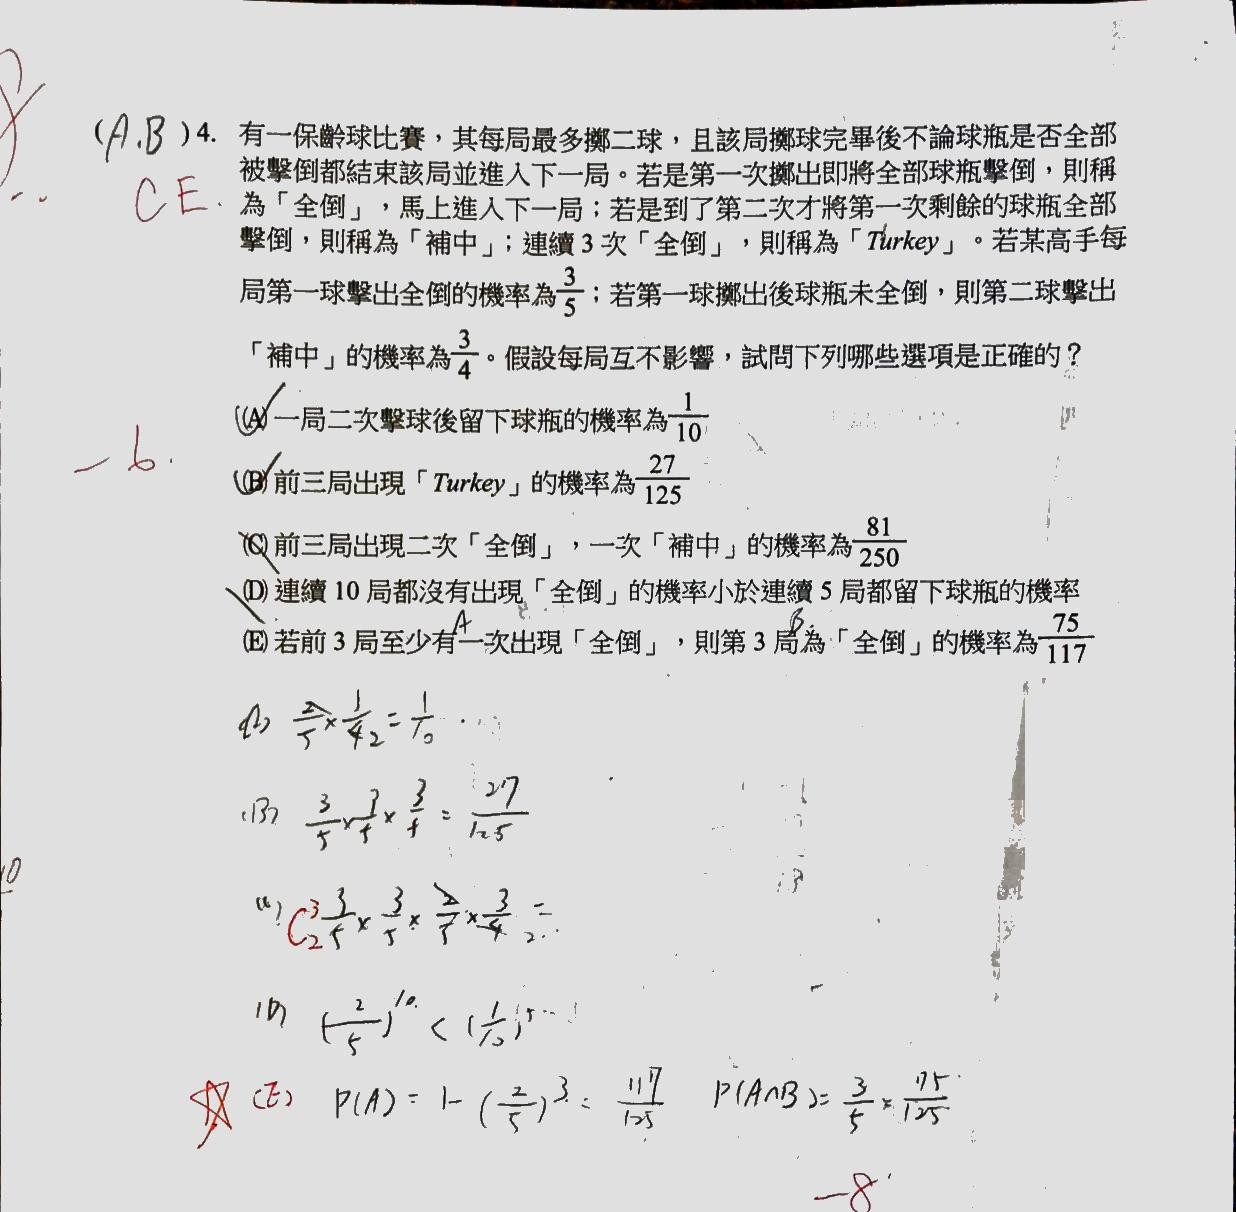 (A.B)4. 有一保齡球比賽，其每局最多擲二球，且該局擲球完畢後不論球瓶是否全部
被擊倒都結束該局並進入下一局。若是第一次擲出即將全部球瓶擊倒，則稱
CE.
為「全倒」，馬上進入下一局；若是到了第二次才將第一次剩餘的球瓶全部
擊倒，則稱為「補中」；連續 3 次「全倒」，則稱為「Turkey」。若某高手每
局第一球擊出全倒的機率為3/5；若第一球擲出後球瓶未全倒，則第二球擊出
「補中」的機率為3/4。假設每局互不影響，試問下列哪些選項是正確的？
(A) 一局二次擊球後留下球瓶的機率為1/10
-6.
(B) 前三局出現「Turkey」的機率為27/125
(C) 前三局出現二次「全倒」，一次「補中」的機率為81/250
(D) 連續 10 局都沒有出現「全倒」的機率小於連續 5 局都留下球瓶的機率
A B
(E) 若前 3 局至少有一次出現「全倒」，則第 3 局為「全倒」的機率為75/117
(A) 2/5 × 1/4 = 1/10
(B) 3/5 × 3/5 × 3/5 = 27/125
(C) C³₂ 3/5 × 3/5 × 2/5 × 3/4 =
10
(D) (2/5)¹⁰ < (1/10)⁵
(E) P(A) = 1 - (2/5)³ = 117/125 P(A∩B) = 3/5 × 75/125
-8